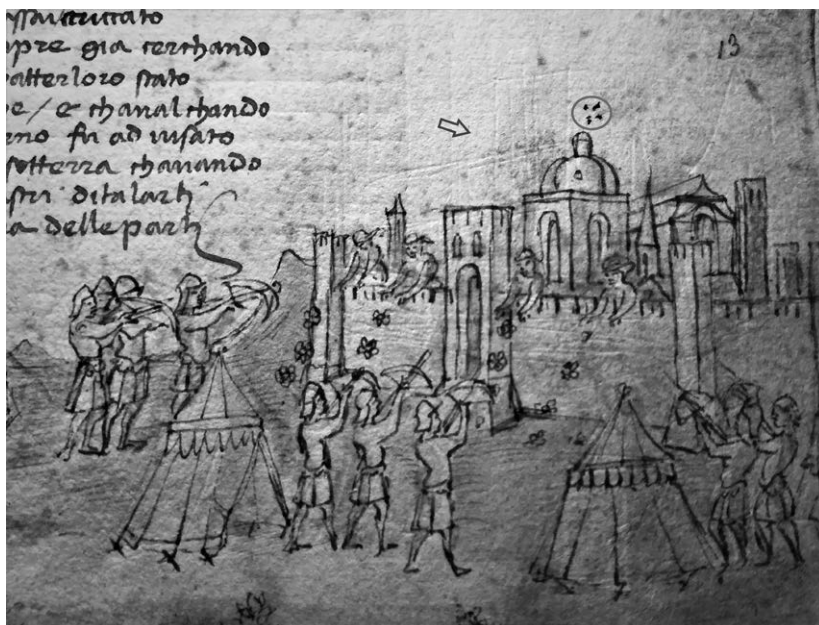 13
pre gia cerchando
atter loro stato
e / e chaualchando
rno fu aduisato
sotterra chauando
stri di tal arti
a delle parti